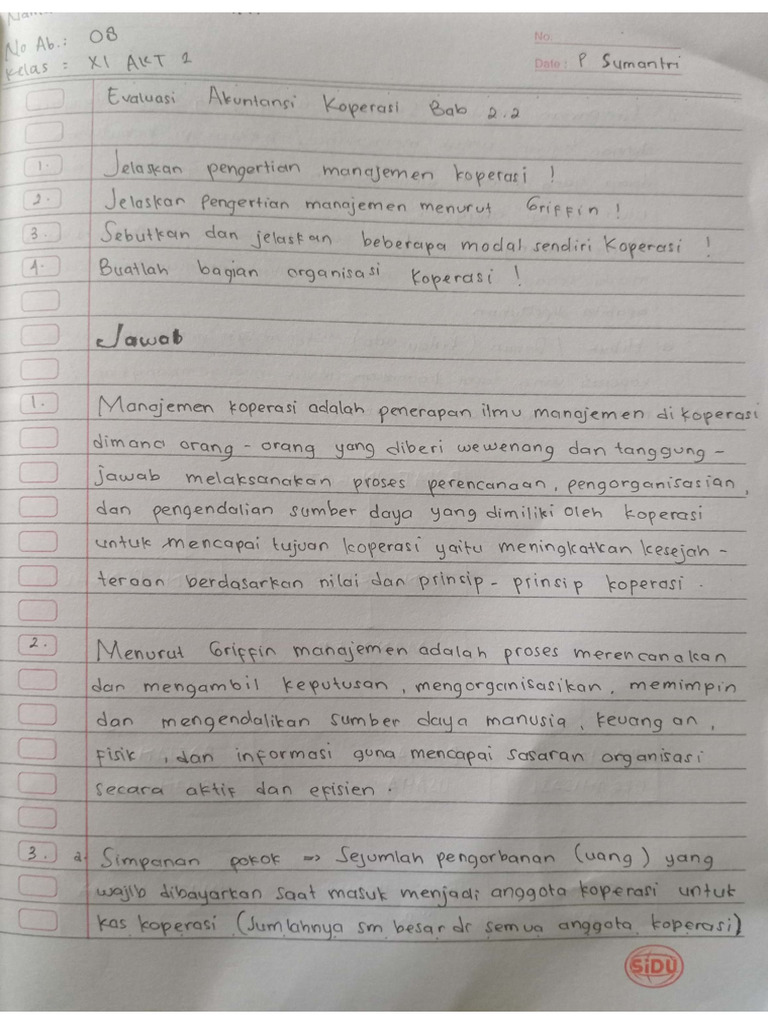 No Ab.: 08
Kelas : XI AKT 2
No.
Date : P Sumantri
Evaluasi Akuntansi Koperasi Bab 2.2
1. Jelaskan pengertian manajemen koperasi !
2. Jelaskan Pengertian manajemen menurut Griffin !
3. Sebutkan dan jelaskan beberapa modal sendiri Koperasi !
4. Buatlah bagian organisasi Koperasi !
Jawab
1. Manajemen koperasi adalah penerapan ilmu manajemen di koperasi
dimana orang - orang yang diberi wewenang dan tanggung -
jawab melaksanakan proses perencanaan, pengorganisasian,
dan pengendalian sumber daya yang dimiliki oleh koperasi
untuk mencapai tujuan koperasi yaitu meningkatkan kesejah -
teraan berdasarkan nilai dan princip - prinsip koperasi .
2. Menurut Griffin manajemen adalah proses merencanakan
dan mengambil keputusan , mengorganisasikan , memimpin
dan mengendalikan sumber daya manusia , keuangan ,
fisik , dan informasi guna mencapai sasaran organisasi
secara aktif dan efisien .
3. a. Simpanan pokok => Sejumlah pengorbanan (uang) yang
wajib dibayarkan saat masuk menjadi anggota koperasi untuk
kas koperasi (Jumlahnya sm besar dr semua anggota koperasi)
SiDU